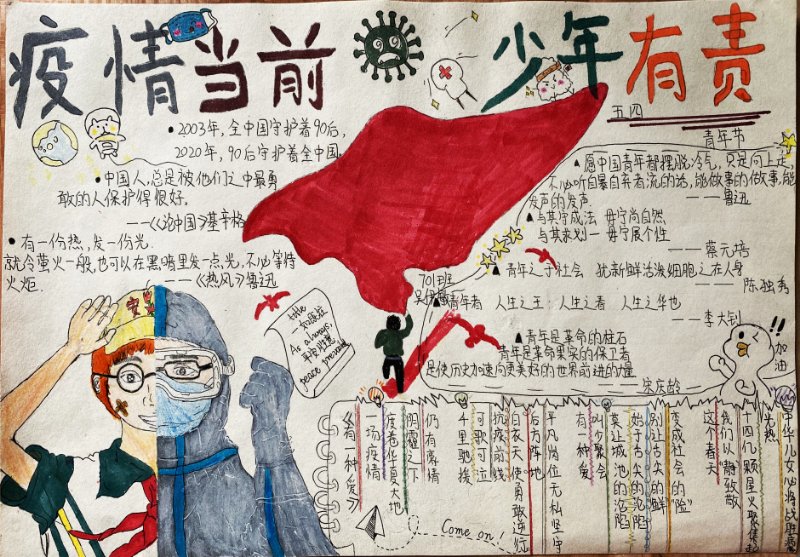 疫情当前 少年有责
•2003年,全中国守护着90后,
2020年,90后守护着全中国.
•中国人,总是被他们之中最勇
敢的人保护得很好.
——《论中国》基辛格
•有一份热,发一份光.
就令萤火一般,也可以在黑暗里发一点光,不必等待
火炬 ——《热风》鲁迅
安
title
一如既往
As always,
平安归来
peace
701班
五四
青年节
▲愿中国青年都摆脱冷气,只是向上走,
不必听自暴自弃者流的话,能做事的做事,能
发声的发声 ——鲁迅
▲与其守成法 毋宁尚自然
与其求划一 毋宁展个性
———蔡元培
▲青年之于社会 犹新鲜活泼细胞之在人身
———陈独秀
▲青年者 人生之王,人生之春 人生之华也
——李大钊
▲青年是革命的柱石
青年是革命果实的保卫者
是使历史加速向更美好的世界前进的力量
——宋庆龄
!!
加油
中华儿女必将战胜病
光热
十四亿颗星火聚
我们以静致敬
这个春天
变成社会的“险”
别让舌尖的鲜
始于舌尖的沦陷
莫让城池的沦陷
少聚会
有一种爱
平凡岗位无私坚守
后方阵地
白衣天使勇敢逆行
抗疫前线
可歌可泣
千里驰援
仍有真情
阴霾之下
疫卷华夏大地
一场疫情
《有一种爱》
Come on!